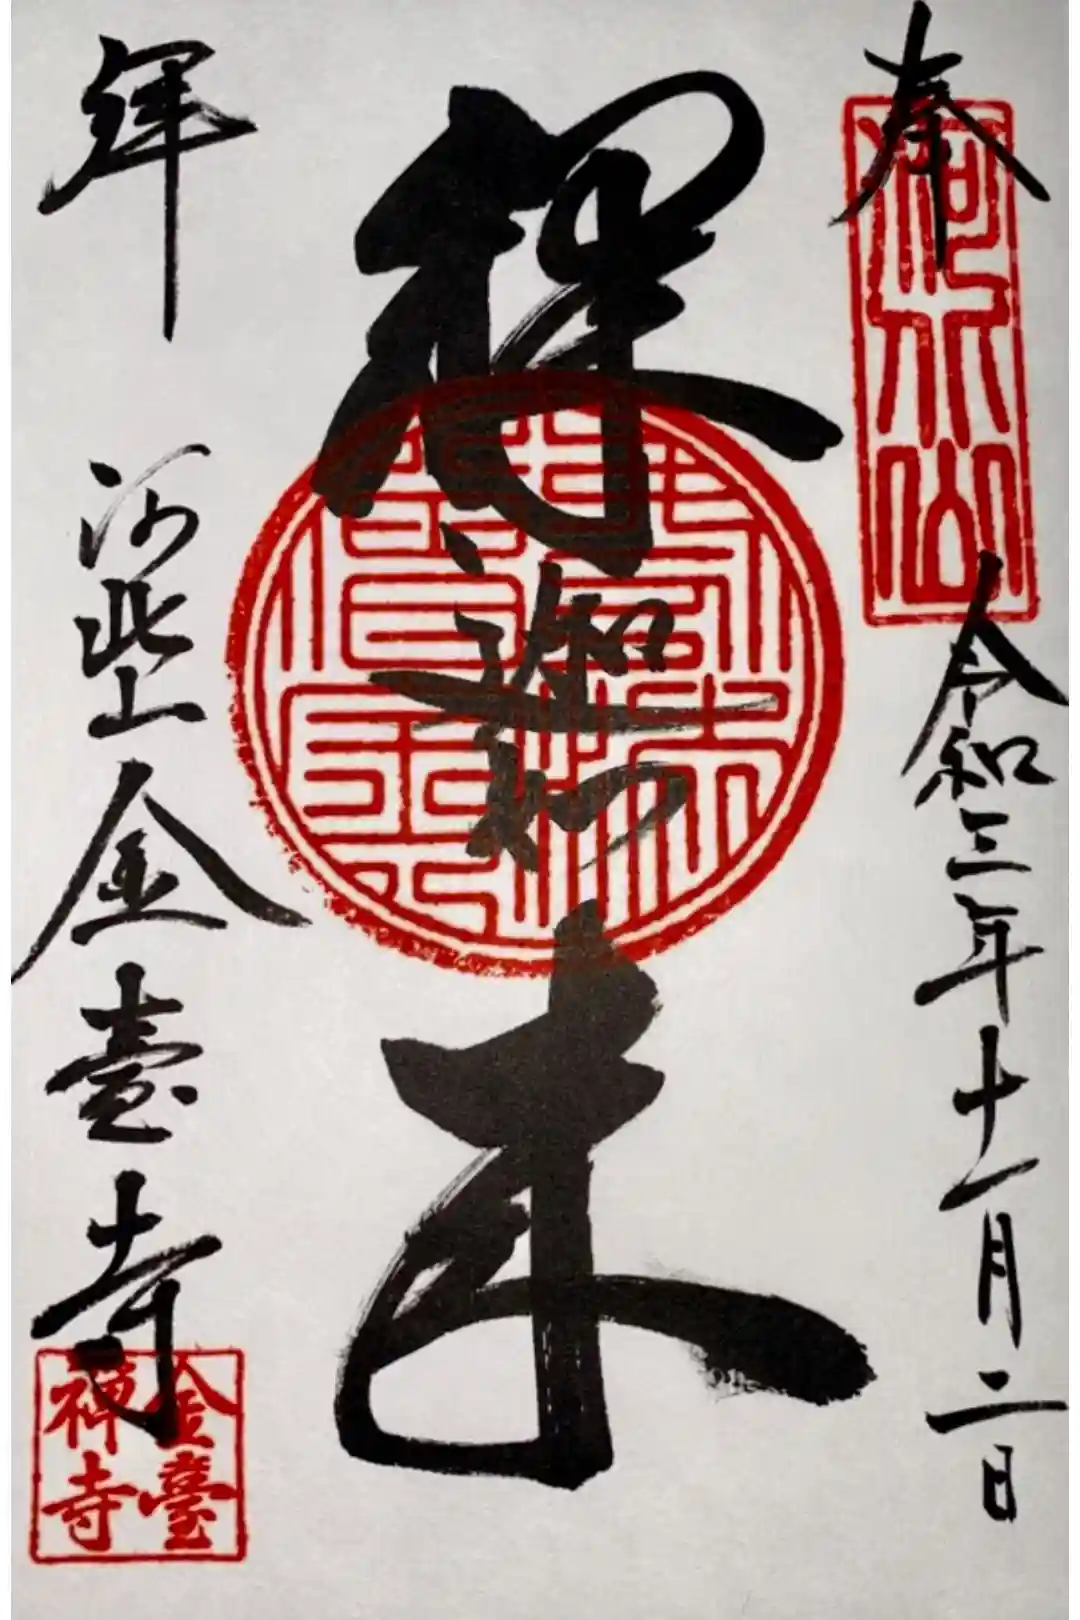 奉
河北山
令和三年十一月二日
釋迦如来
拝
河北山 金臺寺
金臺
禅寺